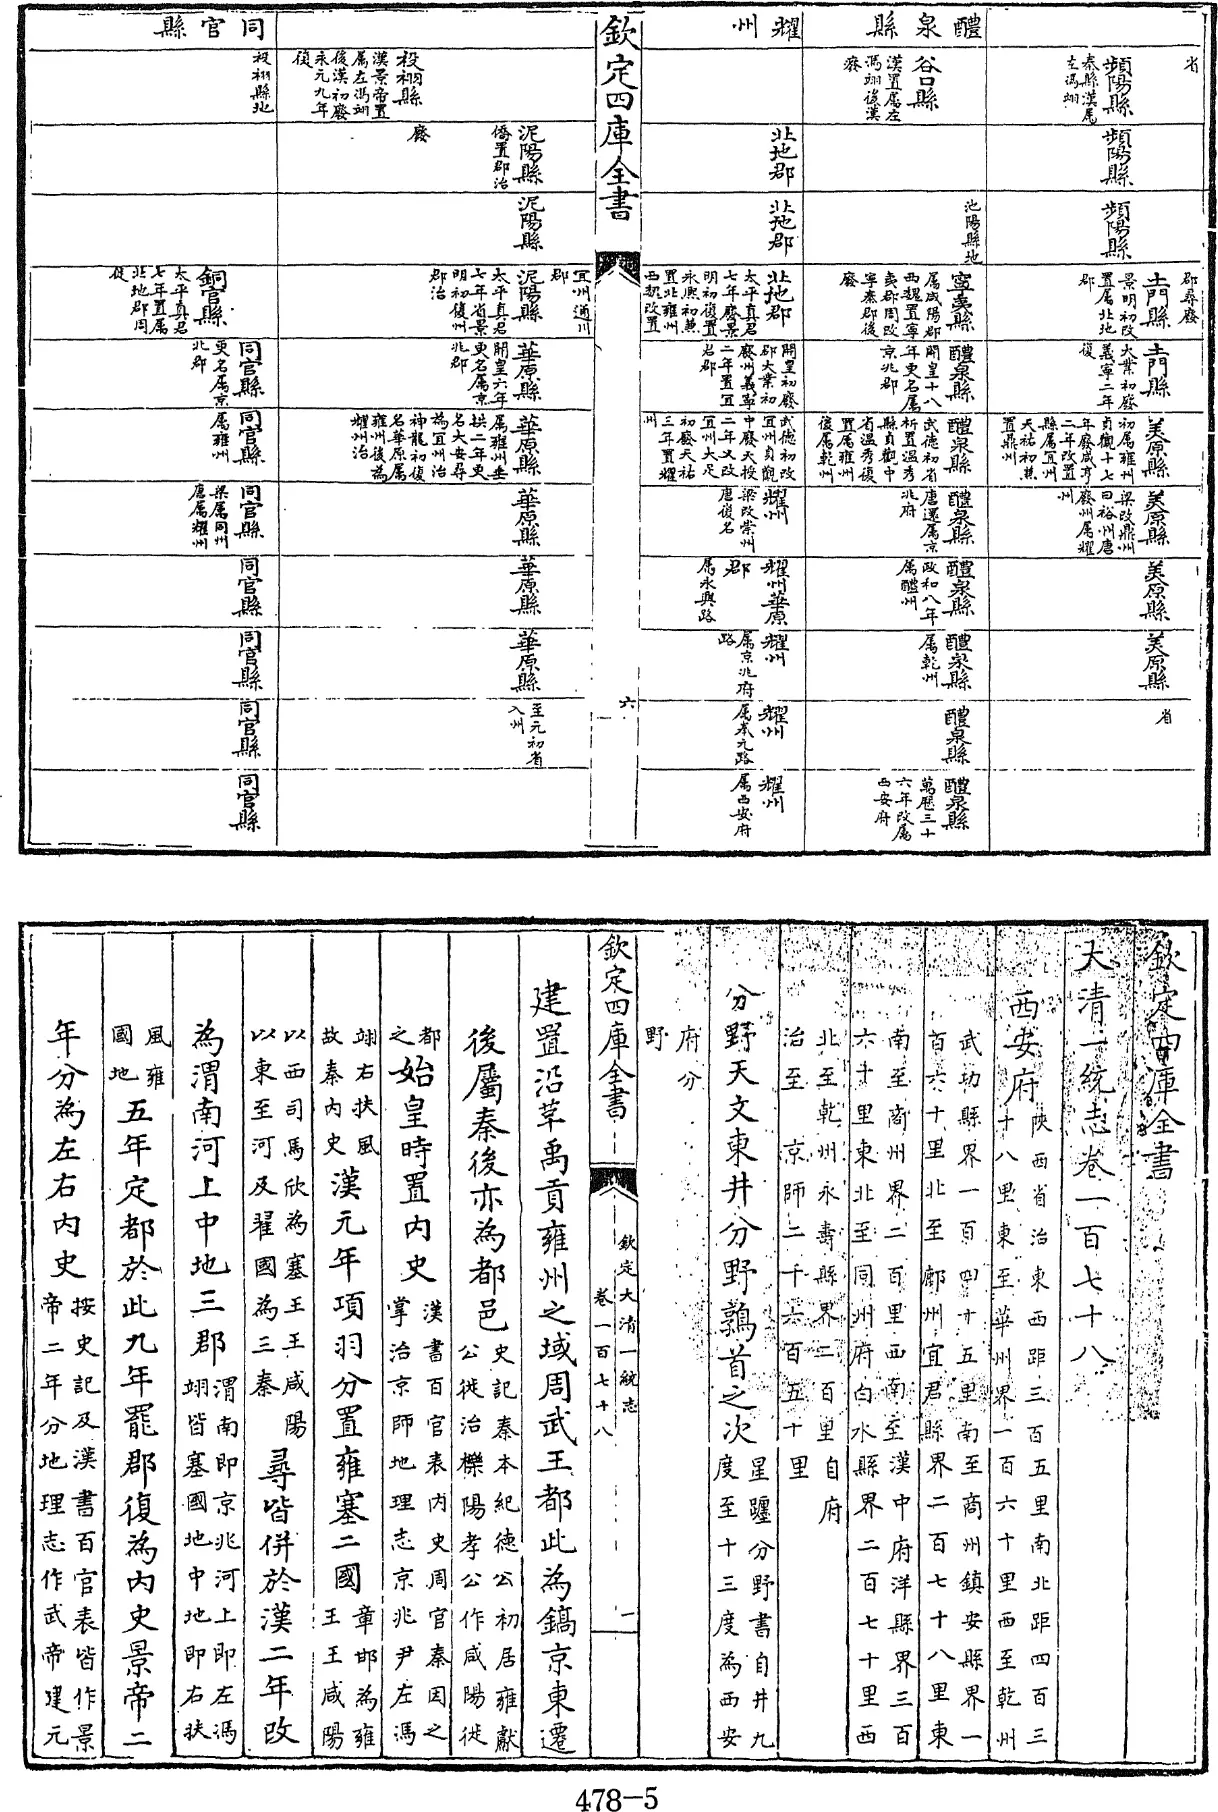 省
頻陽縣
秦縣漢屬
左馮翊
頻陽縣
頻陽縣
郡尋廢
土門縣
景明初改
置屬北地
郡
土門縣
大業初廢
義寧二年
復
美原縣
初屬雍州
貞觀十七
年廢咸亨
二年改置
縣屬宜州
天祐初兼
置鼎州
美原縣
梁改鼎州
曰裕州唐
廢州屬耀
州
美原縣
美原縣
省
醴泉縣
谷口縣
漢置屬左
馮翊後漢
廢
池陽縣地
寧夷縣
屬咸陽郡
西魏置寧
夷郡周改
寧秦郡後
廢
醴泉縣
開皇十八
年更名屬
京兆郡
醴泉縣
武德初省
析置溫秀
縣貞觀中
省溫秀復
置屬雍州
復屬乾州
醴泉縣
唐還屬京
兆府
醴泉縣
政和八年
屬醴州
醴泉縣
屬乾州
醴泉縣
醴泉縣
萬厯三十
六年改屬
西安府
耀州
北地郡
北地郡
北地郡
太平真君
七年廢景
明初復置
永熙初兼
置北雍州
西魏改置
宜州通川
郡
開皇初廢
郡大業初
廢州義寧
二年置宜
君郡
武德初改
宜州貞觀
中廢天授
二年又改
宜州大足
初廢天祐
三年置耀
州
耀州
梁改崇州
唐復名
耀州華原
郡
屬永興路
耀州
屬京兆府
路
耀州
屬奉元路
耀州
屬西安府
欽定四庫全書
六
祋祤縣
漢景帝置
屬左馮翊
後漢初廢
永元九年
復
泥陽縣
僑置郡治
廢
泥陽縣
泥陽縣
太平真君
七年省景
明初復州
郡治
華原縣
開皇六年
更名屬京
兆郡
華原縣
屬雍州垂
拱二年更
名大安尋
為宜州治
神龍初復
名華原屬
雍州後為
耀州治
華原縣
華原縣
華原縣
至元初省
入州
同官縣
祋祤縣地
銅官縣
太平真君
七年置屬
北地郡周
復
同官縣
更名屬京
兆郡
同官縣
屬雍州
同官縣
梁屬同州
唐屬耀州
同官縣
同官縣
同官縣
同官縣
欽定四庫全書
大清一統志卷一百七十八
西安府陝西省治東西距三百五里南北距四百三
十八里東至華州界一百六十里西至乾州
武功縣界一百四十五里南至商州鎮安縣界一
百六十里北至鄜州宜君縣界二百七十八里東
南至商州界二百里西南至漢中府洋縣界三百
六十里東北至同州府白水縣界二百七十里西
北至乾州永壽縣界二百里自府
治至京師二千六百五十里
分野天文東井分野鶉首之次星躔分野書自井九
度至十三度為西安
府分
野
欽定四庫全書
欽定大清一統志
卷一百七十八
一
建置沿革禹貢雍州之域周武王都此為鎬京東遷
後屬秦後亦為都邑史記秦本紀德公初居雍獻
公徙治櫟陽孝公作咸陽徙
都
之始皇時置內史漢書百官表內史周官秦因之
掌治京師地理志京兆尹左馮
翊右扶風
故秦內史漢元年項羽分置雍塞二國章邯為雍
王王咸陽
以西司馬欣為塞王王咸陽
以東至河及翟國為三秦尋皆併於漢二年改
為渭南河上中地三郡渭南即京兆河上即左馮
翊皆塞國地中地即右扶
風雍
國地五年定都於此九年罷郡復為內史景帝二
年分為左右內史按史記及漢書百官表皆作景
帝二年分地理志作武帝建元
478-5